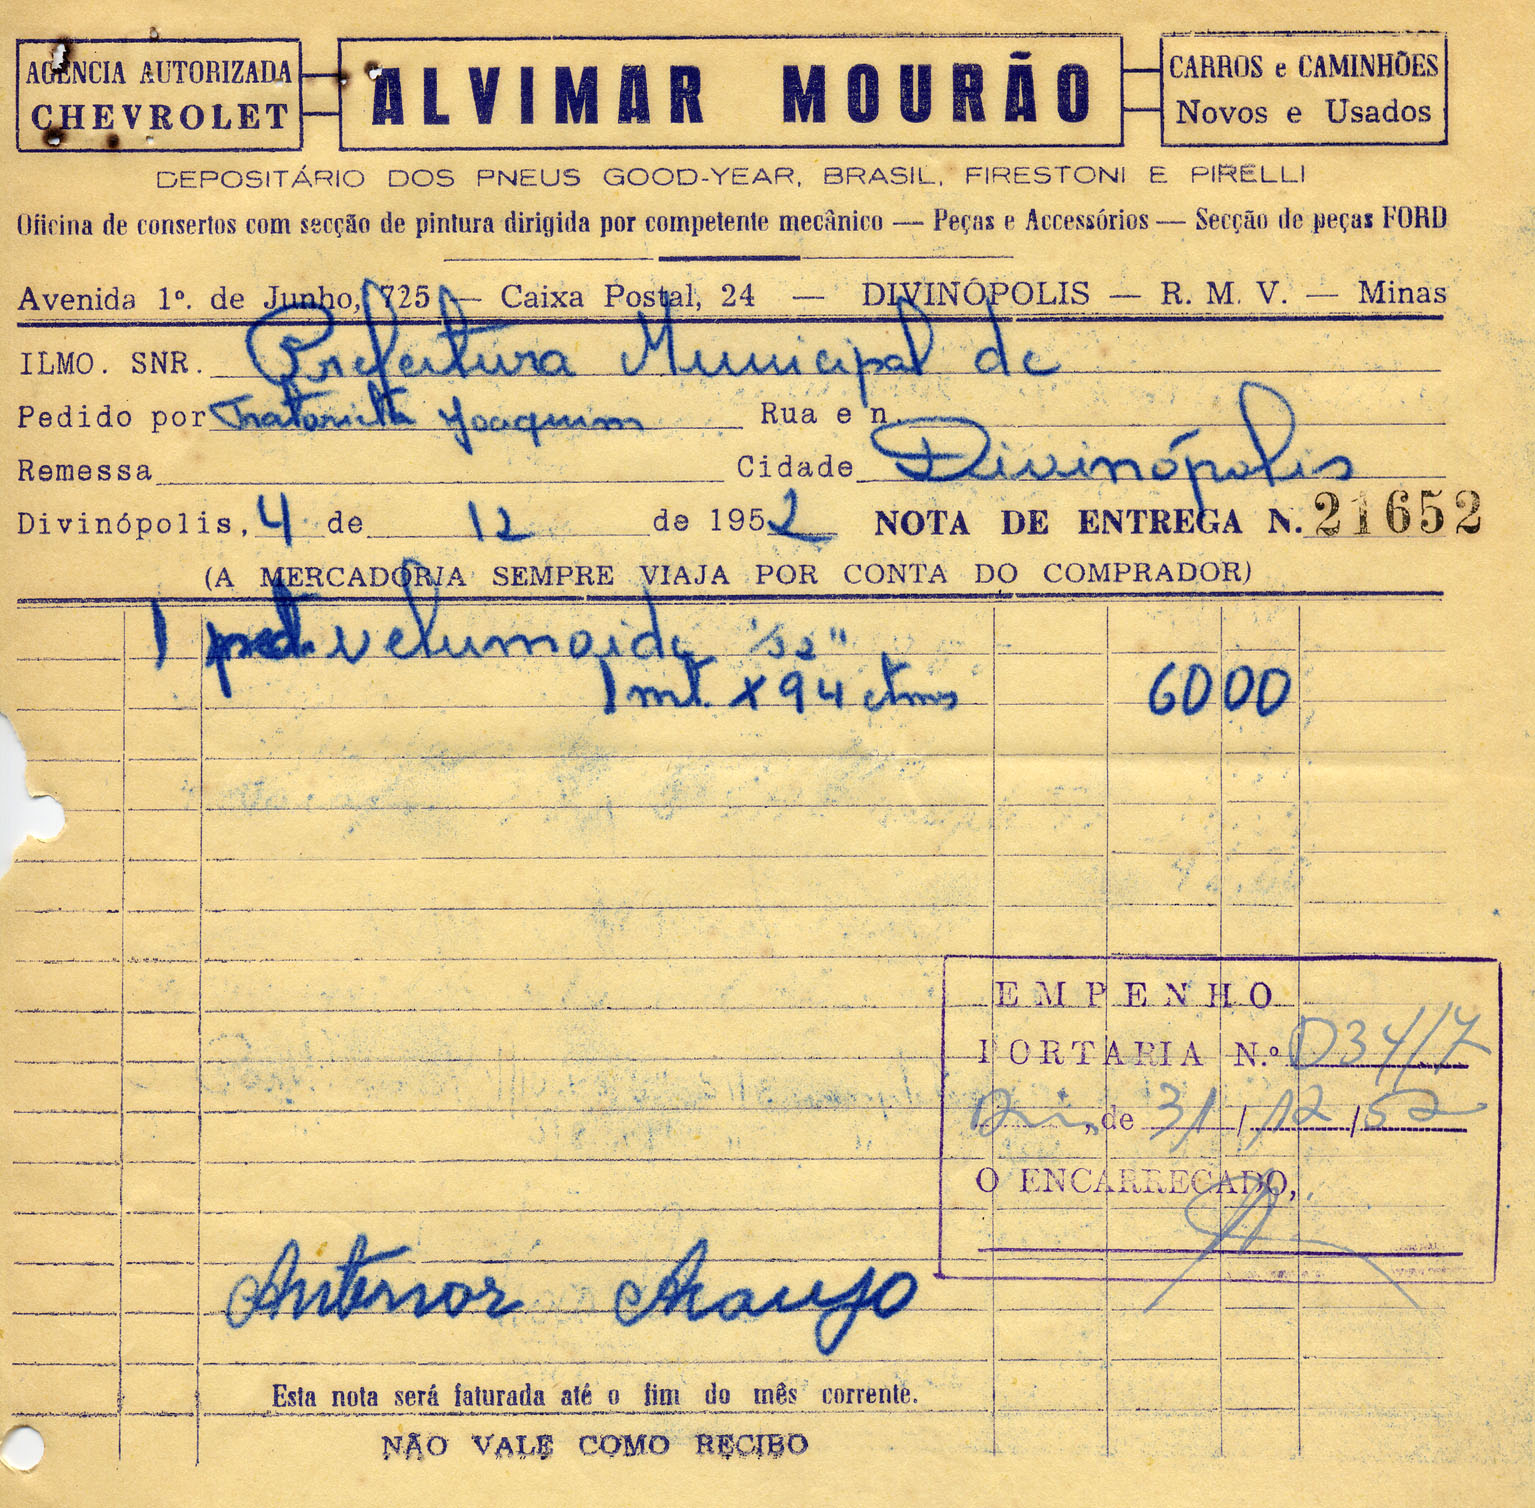 AGÊNCIA AUTORIZADA
CHEVROLET
ALVIMAR MOURÃO
CARROS e CAMINHÕES
Novos e Usados
DEPOSITÁRIO DOS PNEUS GOOD-YEAR, BRASIL, FIRESTONI E PIRELLI
Oficina de consertos com secção de pintura dirigida por competente mecânico — Peças e Accessórios — Secção de peças FORD
Avenida 1º. de Junho, 725 — Caixa Postal, 24 — DIVINÓPOLIS — R. M. V. — Minas
ILMO. SNR. Prefeitura Municipal de
Pedido por Joaquim Rua e n.
Remessa Cidade Divinópolis
Divinópolis, 4 de 12 de 1952 NOTA DE ENTREGA N. 21652
(A MERCADORIA SEMPRE VIAJA POR CONTA DO COMPRADOR)
1 velumoide
1 mt. x 94 ctms 6000
EMPENHO
PORTARIA N.º 034/7
de 31/12/52
O ENCARREGADO,
Antenor Araujo
Esta nota será faturada até o fim do mês corrente.
NÃO VALE COMO RECIBO